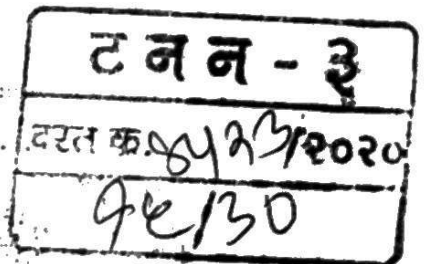 ट न न - ३
दस्त क्र. ४५२३/२०२०
१८/३०